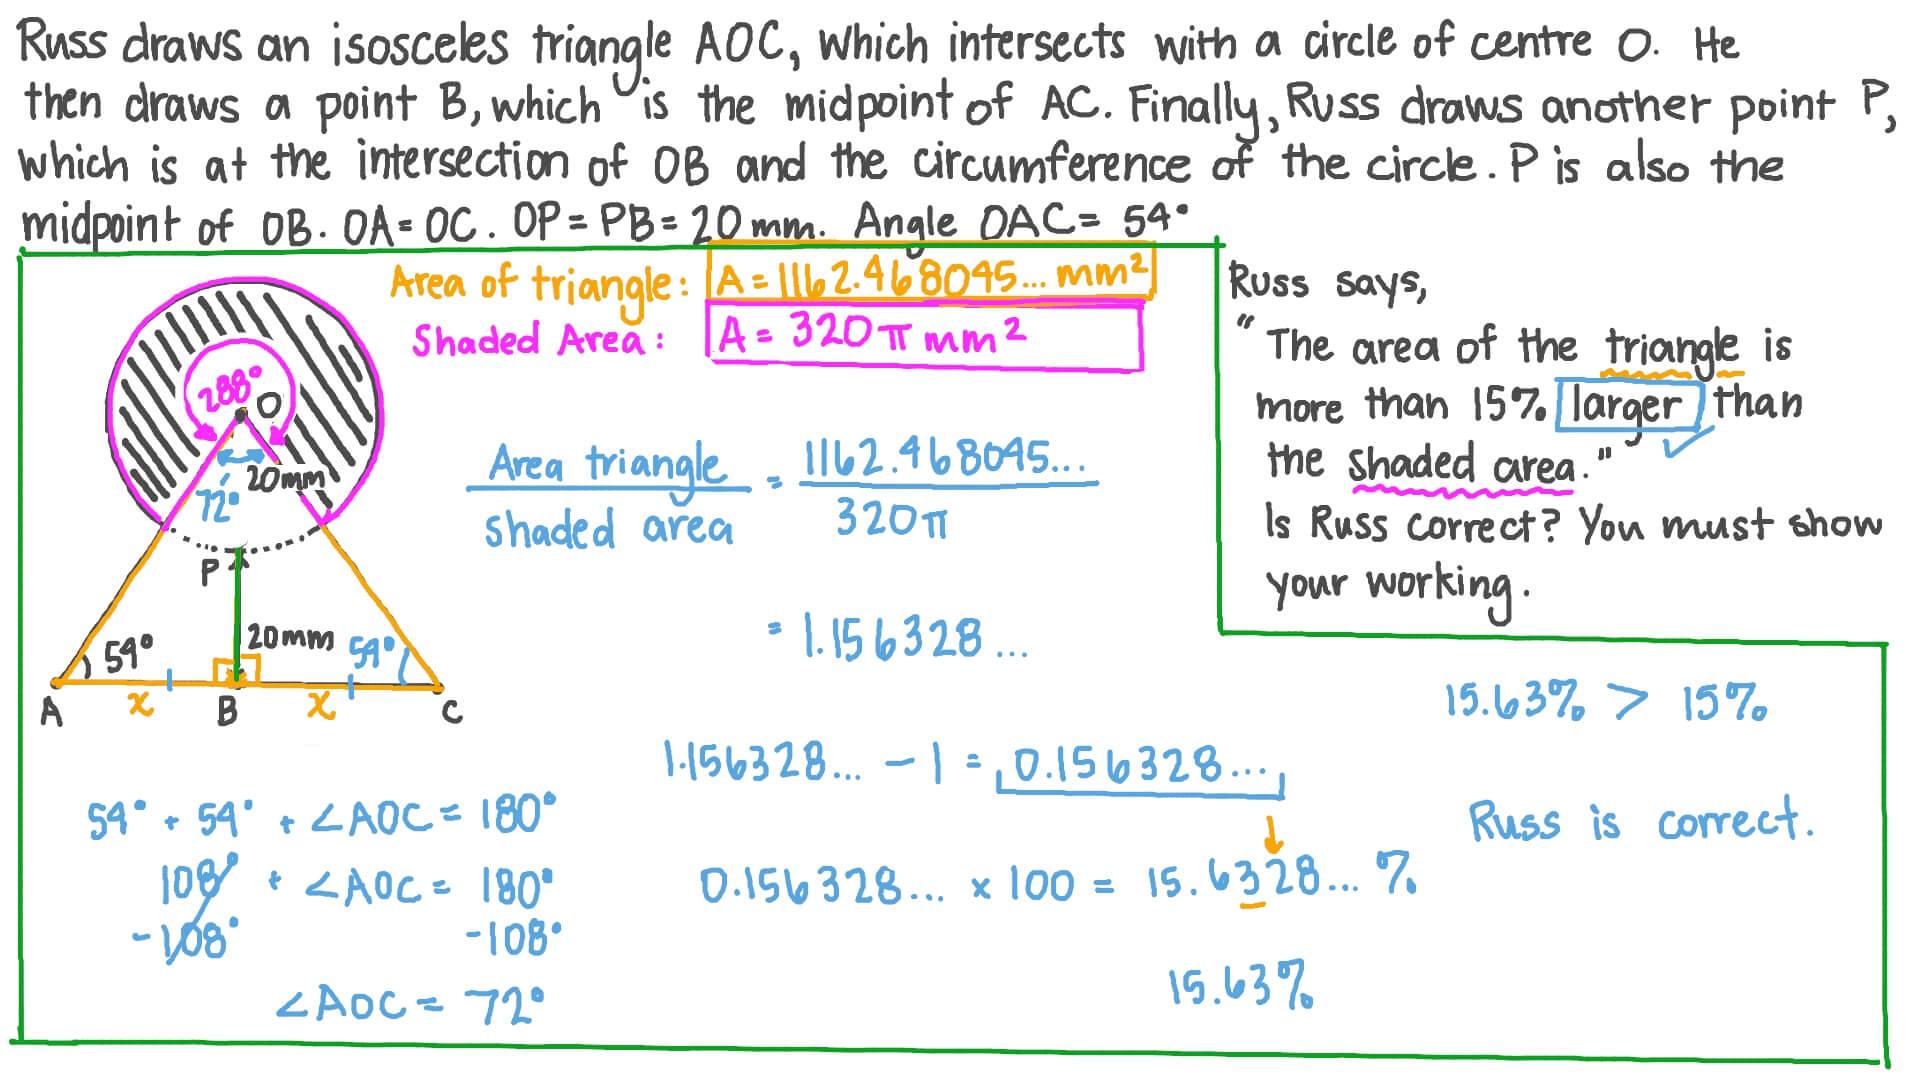 Russ draws an isosceles triangle AOC, which intersects with a circle of centre O. He
then draws a point B, which is the midpoint of AC. Finally, Russ draws another point P,
which is at the intersection of OB and the circumference of the circle. P is also the
midpoint of OB. OA = OC. OP = PB = 20 mm. Angle OAC = 54°
Area of triangle: A = 1162.468045... mm²
Shaded Area: A = 320π mm²
Russ says,
"The area of the triangle is
more than 15% larger than
the shaded area."
Is Russ correct? You must show
your working.
288°
O
20mm
72°
P
54°
20mm
54°
A
x
B
x
C
Area triangle / shaded area = 1162.468045... / 320π
= 1.156328...
1.156328... - 1 = 0.156328...
0.156328... x 100 = 15.6328... %
15.63%
15.63% > 15%
Russ is correct.
54° + 54° + ∠AOC = 180°
108° + ∠AOC = 180°
-108° -108°
∠AOC = 72°